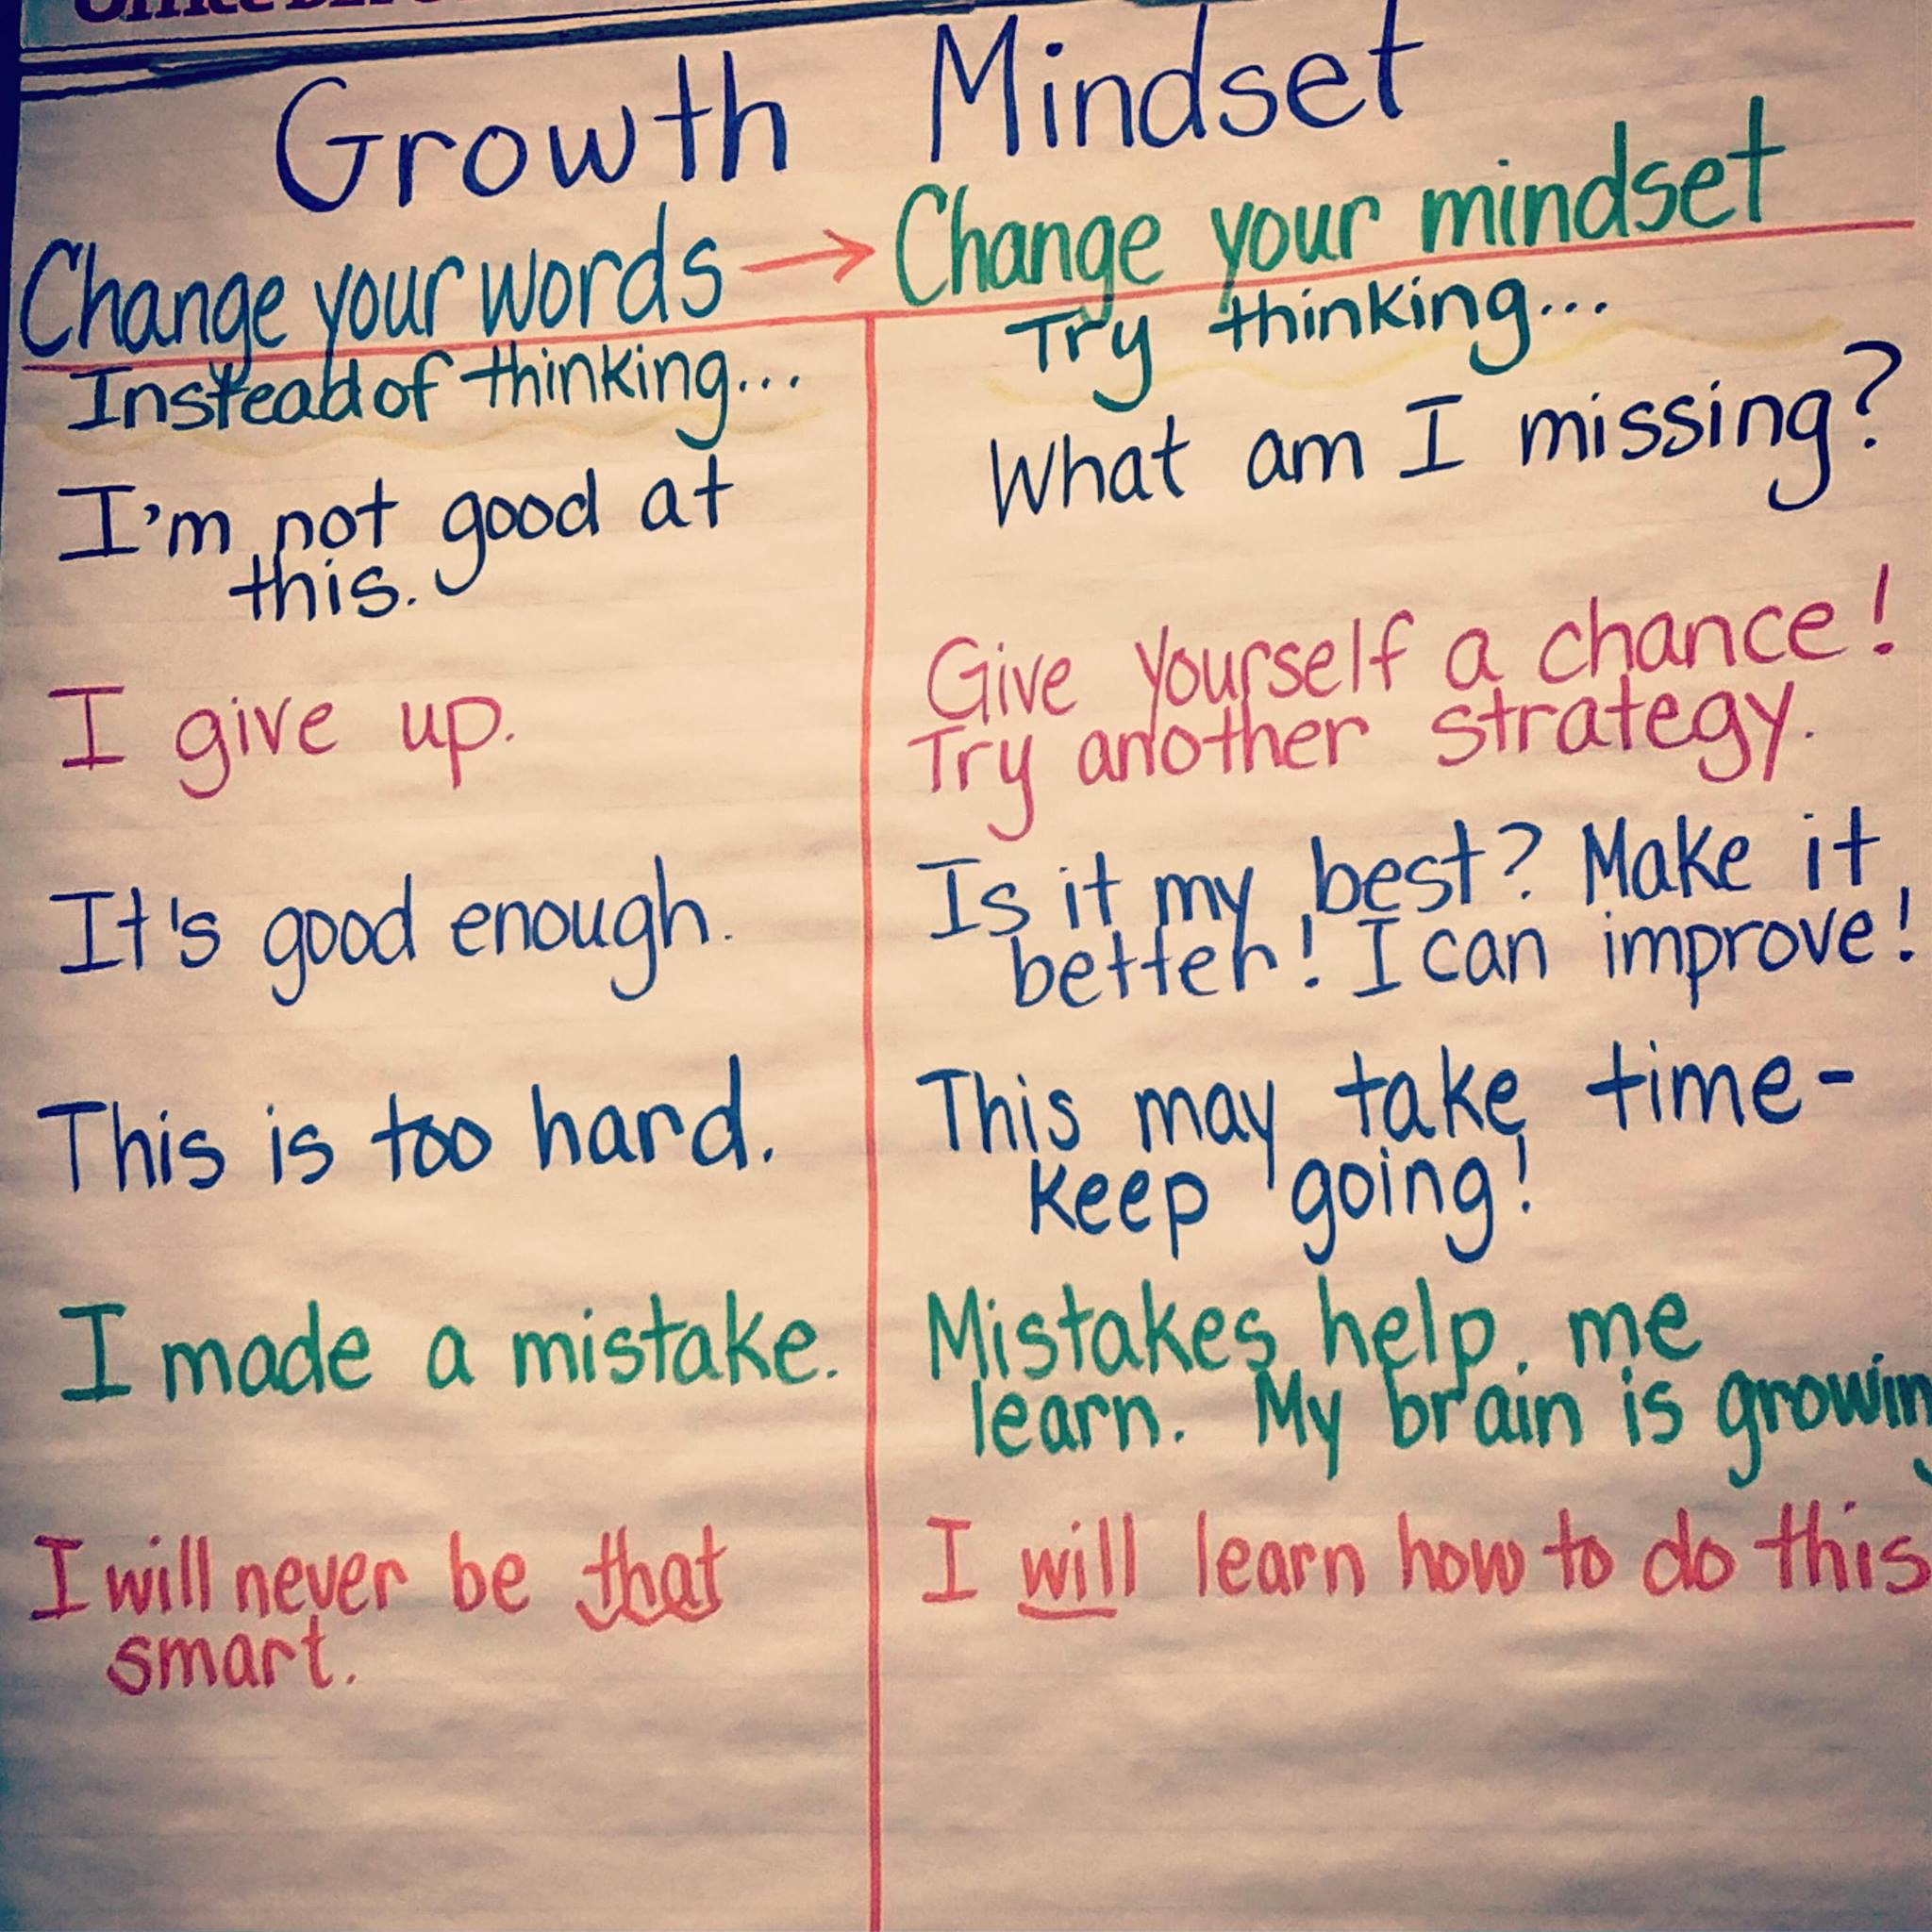 Office
Growth Mindset
Change your words → Change your mindset
Instead of thinking...
Try thinking...
I'm not good at
this.
What am I missing?
I give up.
Give yourself a chance!
Try another strategy.
It's good enough.
Is it my best? Make it
better! I can improve!
This is too hard.
This may take time-
keep going!
I made a mistake.
Mistakes help me
learn. My brain is growing
I will never be that
smart.
I will learn how to do this